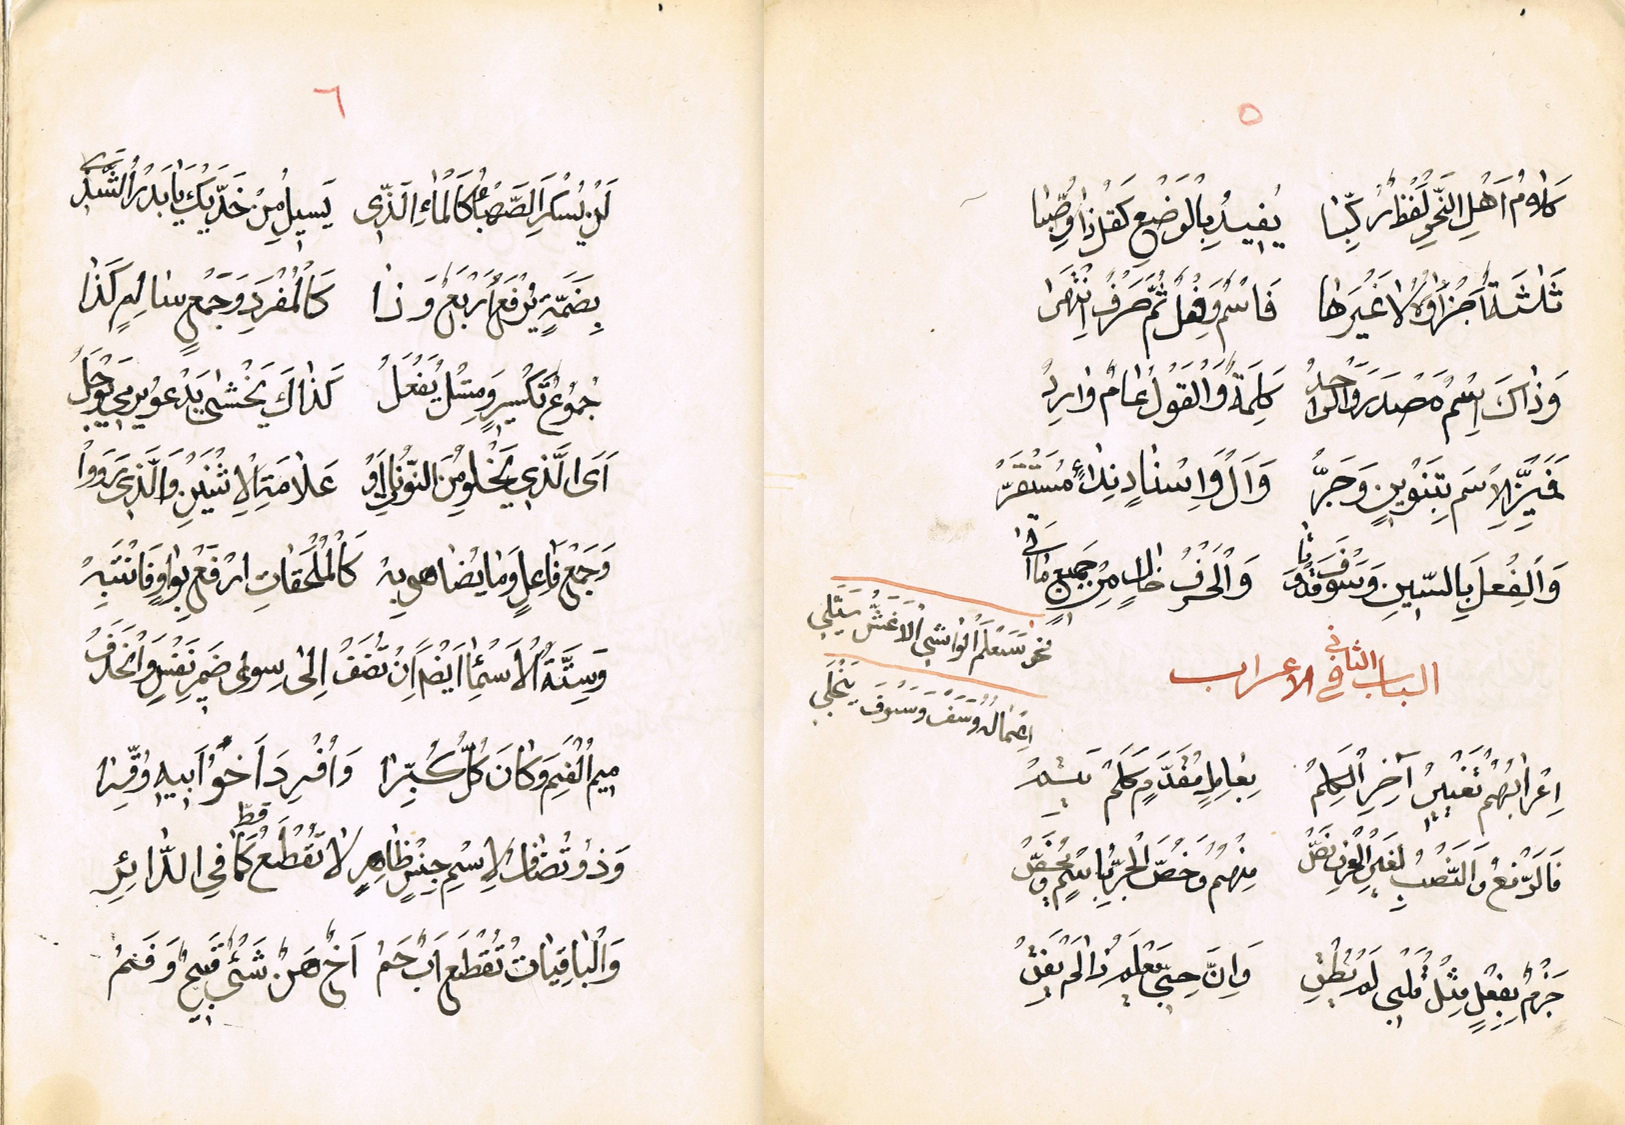 ٥
كَلَامُ اَهْلِ النَّحْوِ لَفْظٌ رُكِّبَا يُفِيدُ بِالْوَضْعِ كَقُلْ ذَا وَصَبَا
ثَلٰثَةٌ اَجْزَاؤُهُ لَا غَيْرَهَا فَاسْمٌ وَفِعْلٌ ثُمَّ حَرْفٌ انْتَهىٰ
وَذَاكَ اِسْمُ مَصْدَرٍ وَالْوَاحِدُ كَلِمَةٌ وَالْقَوْلُ عَامٌ وَارِدُ
فَمَيِّزِ الْاِسْمَ بِتَنْوِينٍ وَجَرٍّ وَاَلْ وَاِسْنَادٍ نِدَاءٍ مُسْتَقَرّ
وَالْفِعْلَ بِالسِّينِ وَسَوْفَ وَقَدْ وَتَا وَالْحَرْفُ خَالٍ مِنْ جَمِيعِ مَا اَتىٰ
نحو سَيَعْلَمُ الْوَاشِي
وَسَفْ وَسَوْفَ
الباب الثانى فى الاعراب
اِعْرَابُهُمْ تَغْيِيرُ آخِرِ الْكَلِمْ بِعَامِلٍ مُقَدَّمٍ كَلَمْ
فَالرَّفْعُ وَالنَّصْبُ لِغَيْرِ الْحَرْفِ نَصّ مِنْهُمْ وَخُصَّ الْجَرُّ بِاسْمٍ
جَزْمٌ بِفِعْلٍ مِثْلُ قَلْبِى لَمْ يُطِقْ وَاِنَّ حِبِّى لَمْ يَفِقْ
٦
لَنْ يُسْكِرَ الصَّهْبَاءُ كَالْمَاءِ الَّذِى يَسِيلُ مِنْ خَدَّيْكَ يَا بَدْرُ الشَّذِى
بِضَمَّةٍ يُرْفَعُ اَرْبَعٌ وَذَا كَالْمُفْرَدِ وَجَمْعِ سَالِمٍ كَذَا
جُمُوعُ تَكْسِيرٍ وَمِثْلُ يَفْعَلُ كَذَاكَ يَخْشىٰ يَدْعُو يَرْمِى يَوْجَلُ
اَىِ الَّذِى يَخْلُو مِنَ النُّونِ اَوْ عَلَامَةِ الْاِثْنَيْنِ وَالَّذِى رَوَوْا
وَجَمْعَ فَاعِلٍ وَمَا يُضَاهِى بِهْ كَالْمُلْحَقَاتِ ارْفَعْ بِوَاوٍ فَانْتَبِهْ
وَسِتَّةُ الْاَسْمَا اَيْضًا اِنْ تُضَفْ اِلىٰ سِوىٰ ضَمِيرِ نَفْسٍ وَانْحَذَفْ
مِيمُ الْفَمِ وَكَانَ كُلٌّ كُبِّرَا وَاُفْرِدَ اَخُو اَبِيهِ وُقِّرَا
وَذُو تُضَافُ لِاِسْمِ جِنْسٍ ظَاهِرٍ لَا تُقْطَعُ قَطّ كَمَا فِى الدَّائِرِ
وَالْبَاقِيَاتُ تُقْطَعُ اَبٌ حَمٌ اَخٌ هَنٌ شَئٌ قَبِيحٌ وَفَمٌ